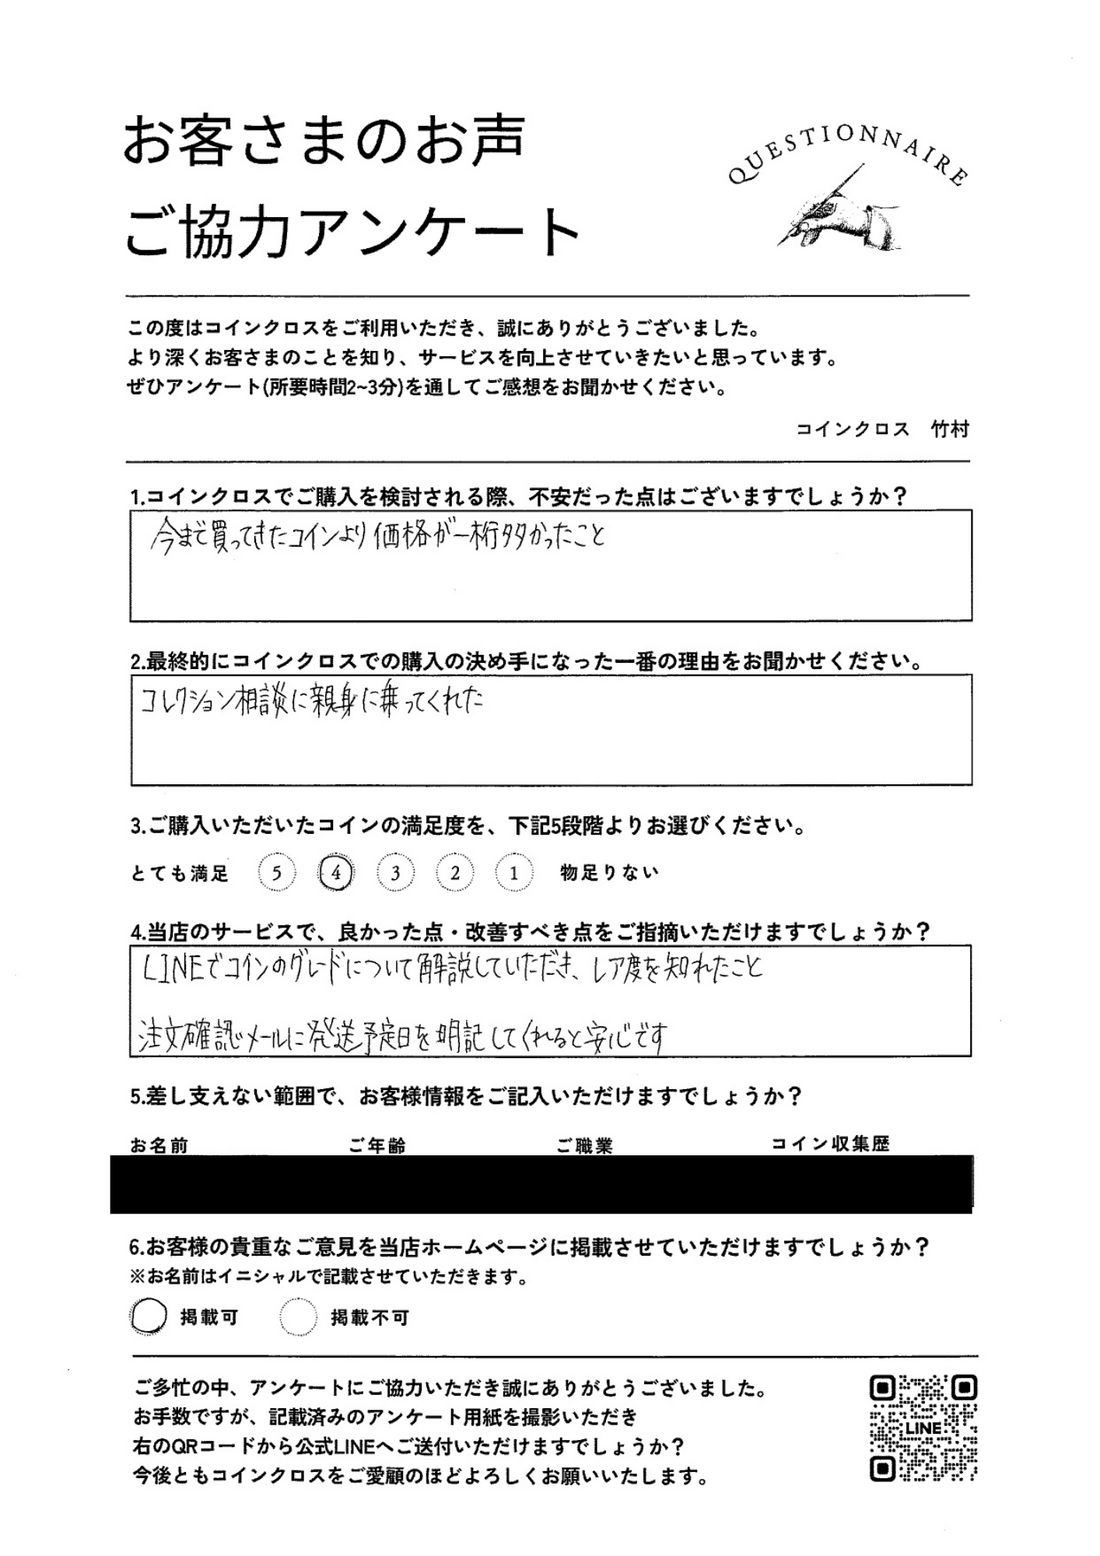 お客さまのお声
ご協力アンケート
QUESTIONNAIRE
この度はコインクロスをご利用いただき、誠にありがとうございました。
より深くお客さまのことを知り、サービスを向上させていきたいと思っています。
ぜひアンケート(所要時間2~3分)を通してご感想をお聞かせください。
コインクロス　竹村
1.コインクロスでご購入を検討される際、不安だった点はございますでしょうか？
今まで買ってきたコインより価格が一桁多かったこと
2.最終的にコインクロスでの購入の決め手になった一番の理由をお聞かせください。
コレクション相談に親身に乗ってくれた
3.ご購入いただいたコインの満足度を、下記5段階よりお選びください。
とても満足 5 4 3 2 1 物足りない
4.当店のサービスで、良かった点・改善すべき点をご指摘いただけますでしょうか？
LINEでコインのグレードについて解説していただき、レア度を知れたこと
注文確認メールに発送予定日を明記してくれると安心です
5.差し支えない範囲で、お客様情報をご記入いただけますでしょうか？
お名前 ご年齢 ご職業 コイン収集歴
6.お客様の貴重なご意見を当店ホームページに掲載させていただけますでしょうか？
※お名前はイニシャルで記載させていただきます。
掲載可 掲載不可
ご多忙の中、アンケートにご協力いただき誠にありがとうございました。
お手数ですが、記載済みのアンケート用紙を撮影いただき
右のQRコードから公式LINEへご送付いただけますでしょうか？
今後ともコインクロスをご愛顧のほどよろしくお願いいたします。
LINE